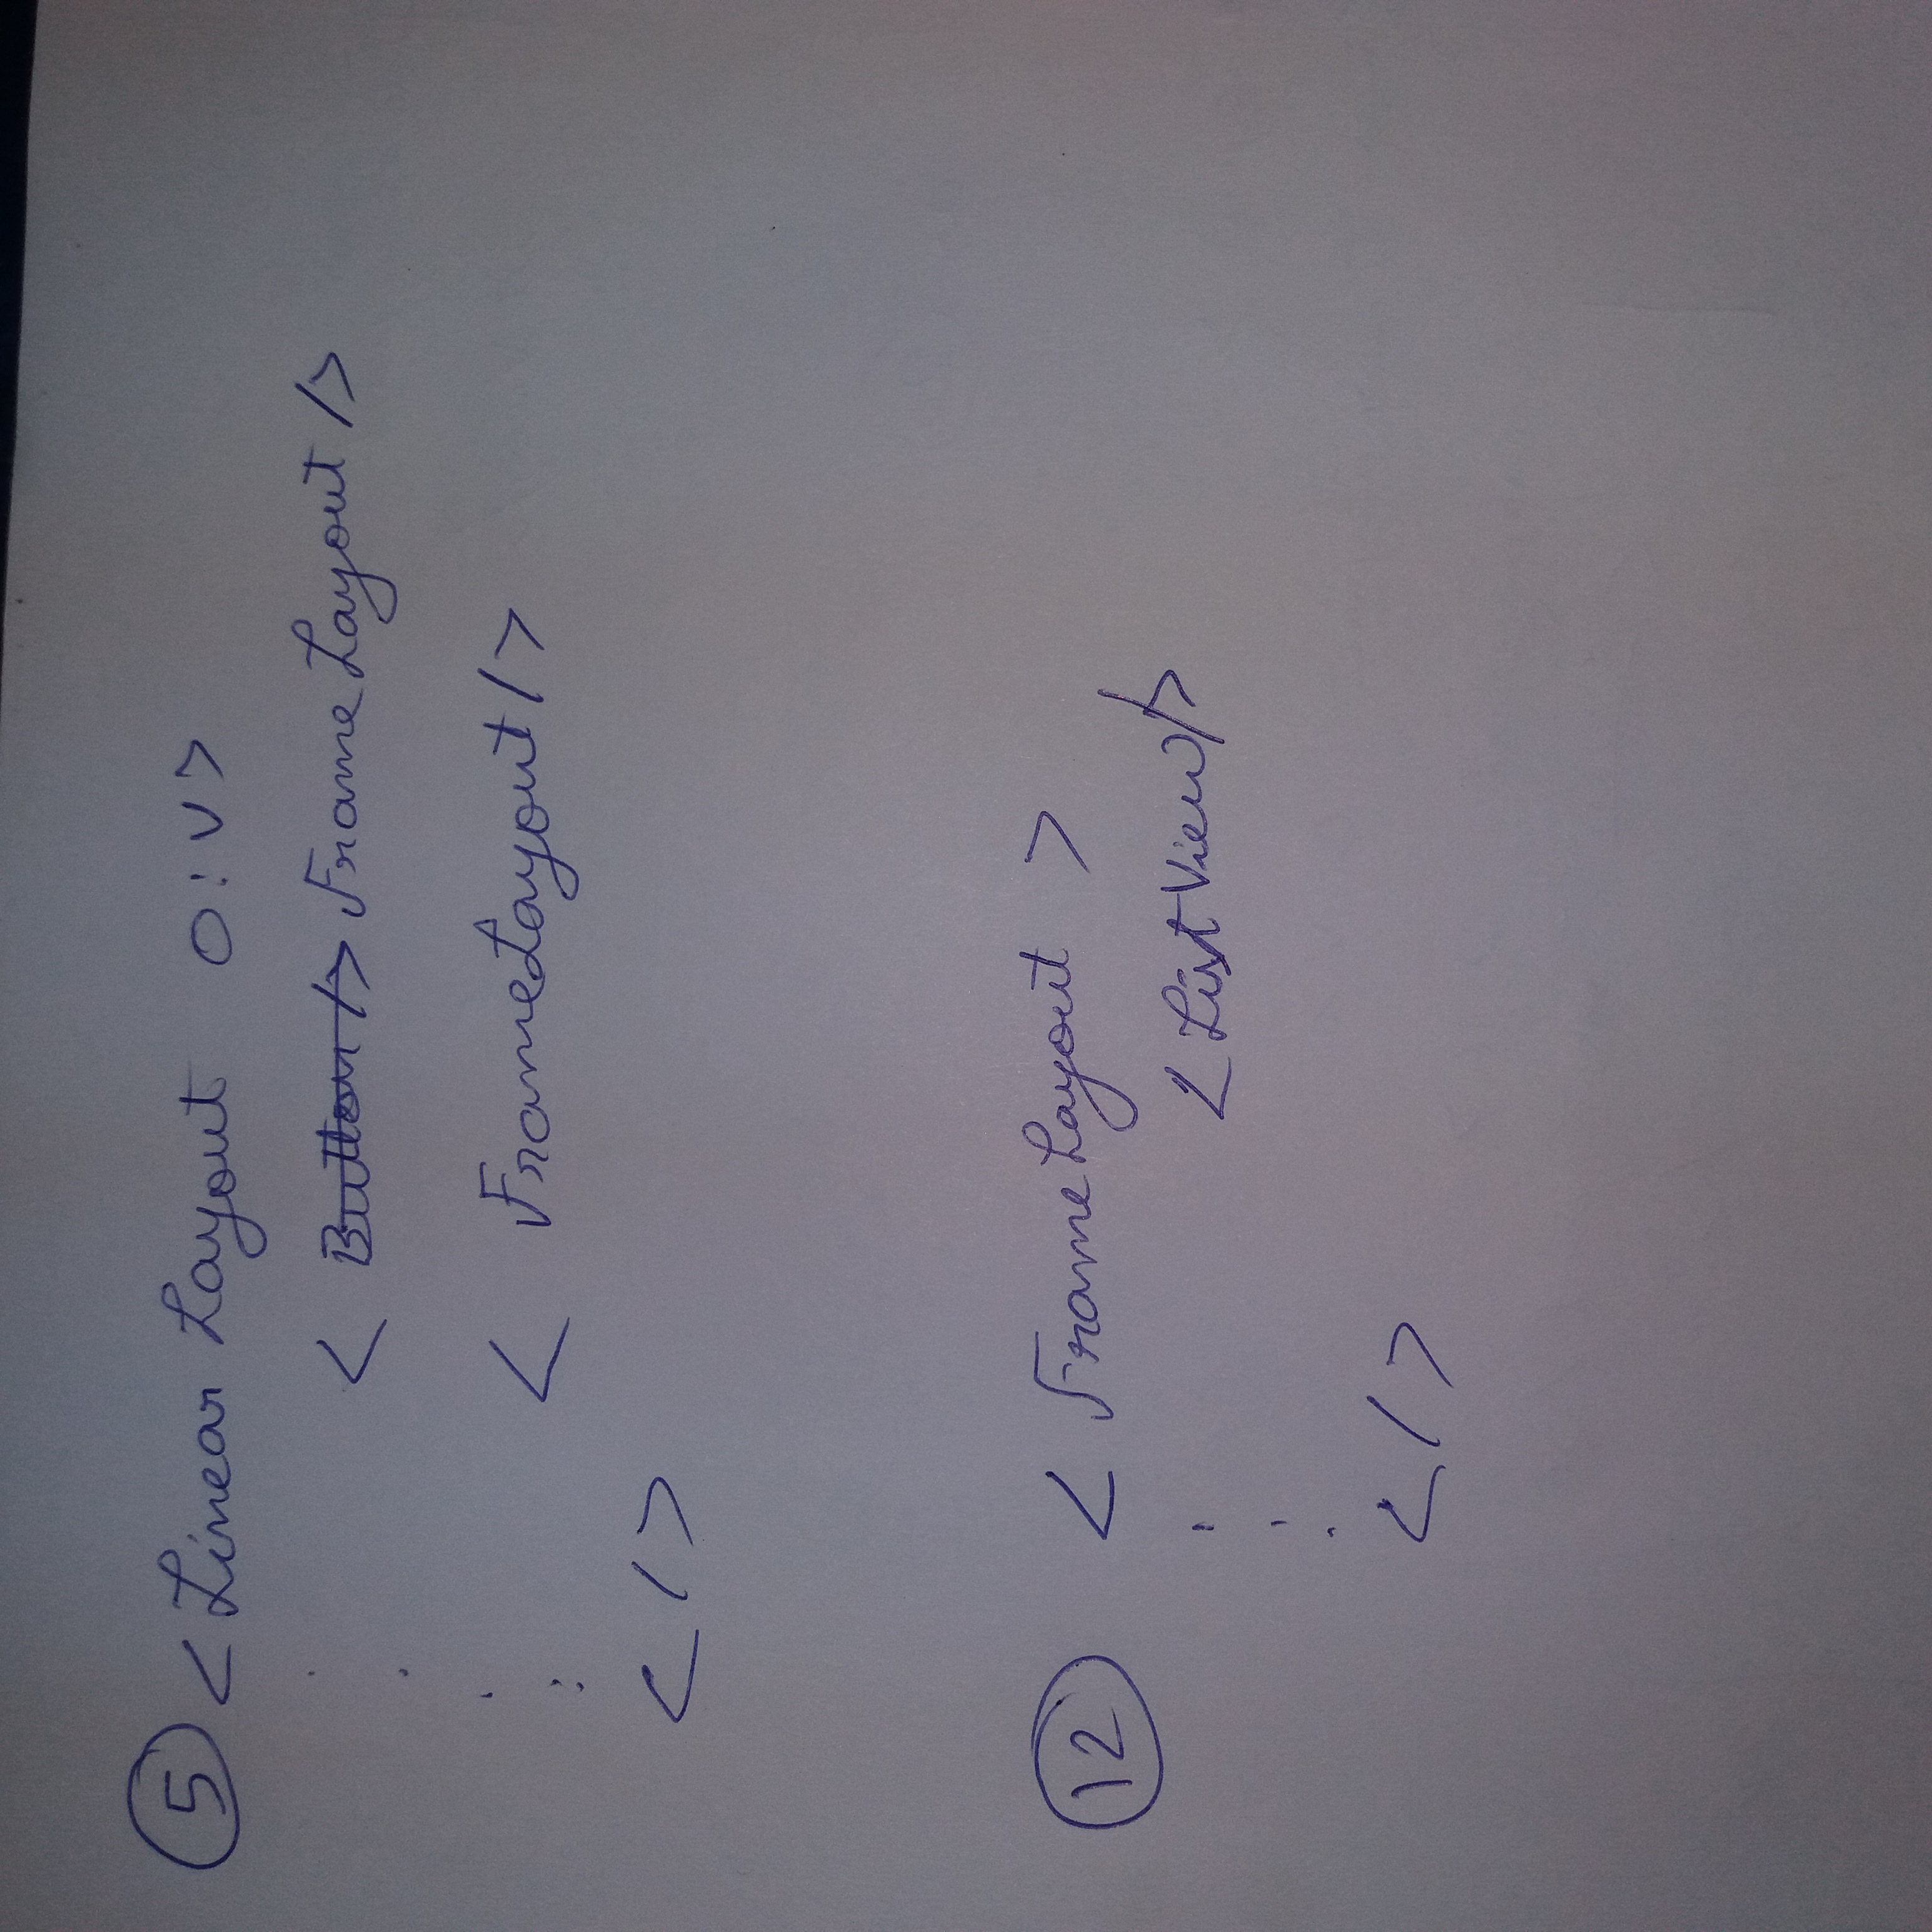 5 <Linear Layout O:V>
< Button /> FrameLayout />
< FrameLayout />
</>
12 < FrameLayout >
< ListView />
</>